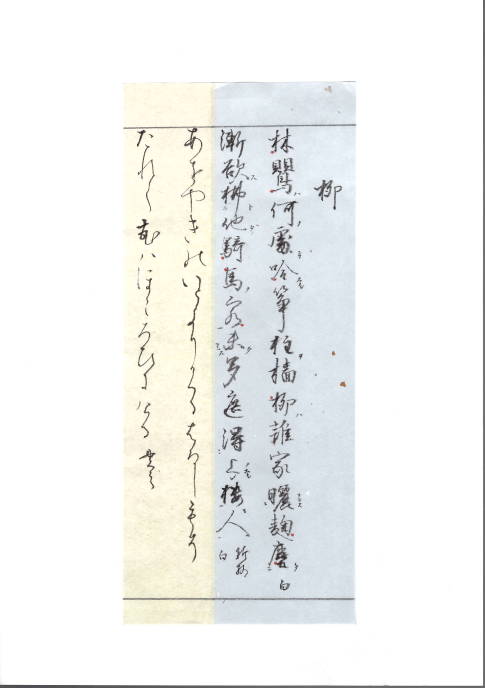 柳
林鸎何處吟箏柱墻柳誰家曬麹塵 白
漸欲拂他騎馬客未多遮得上樓人 新柳 白
あをやきのいとよりかくるはるしもそ
たれて花はほころひにける 貫之